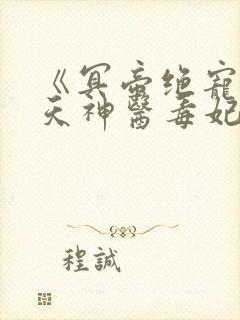 《冥帝绝寵
天神醫毒妃
程誠